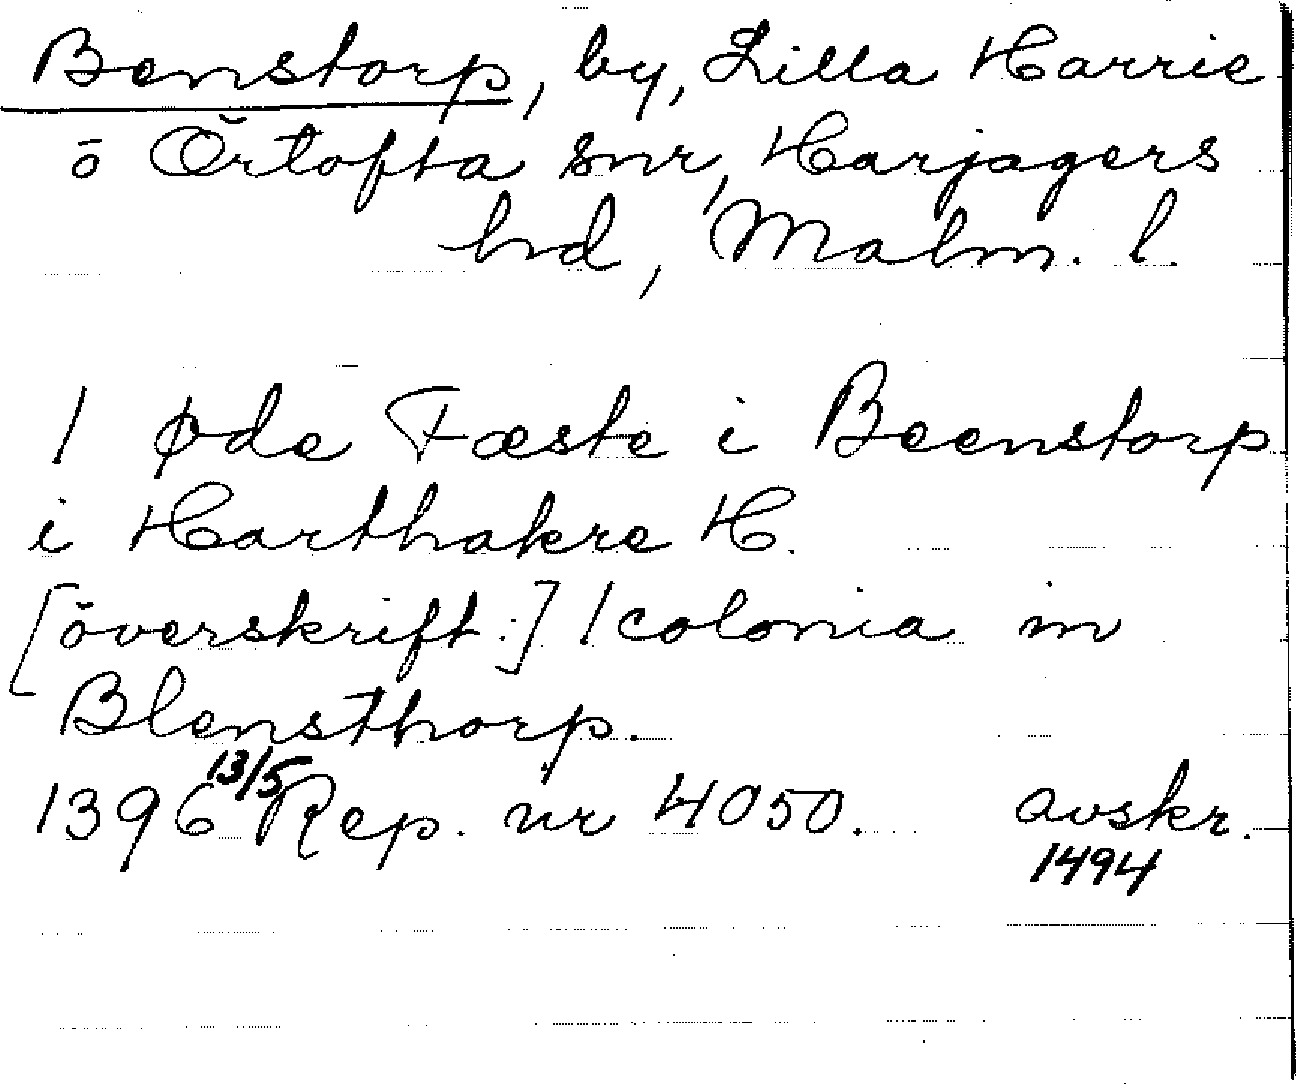 Benstorp, by, Lilla Harrie
o Örtofta snr, Harjagers
hd, Malm. l.
1 øde Fæste i Beenstorp
i Harthakre H.
[överskrift:] 1 colonia in
Blensthorp.
1396 13/5 Rep. nr 4050. avskr.
1494